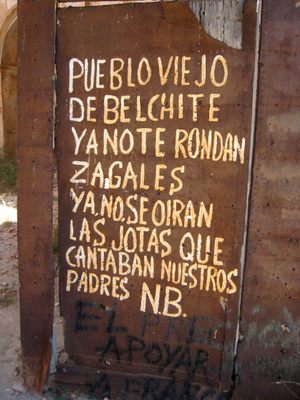 PUEBLO VIEJO
DE BELCHITE
YA NO TE RONDAN
ZAGALES
YA, NO, SE OIRAN
LAS JOTAS QUE
CANTABAN NUESTROS
PADRES N.B.
EL
APOYAR
A